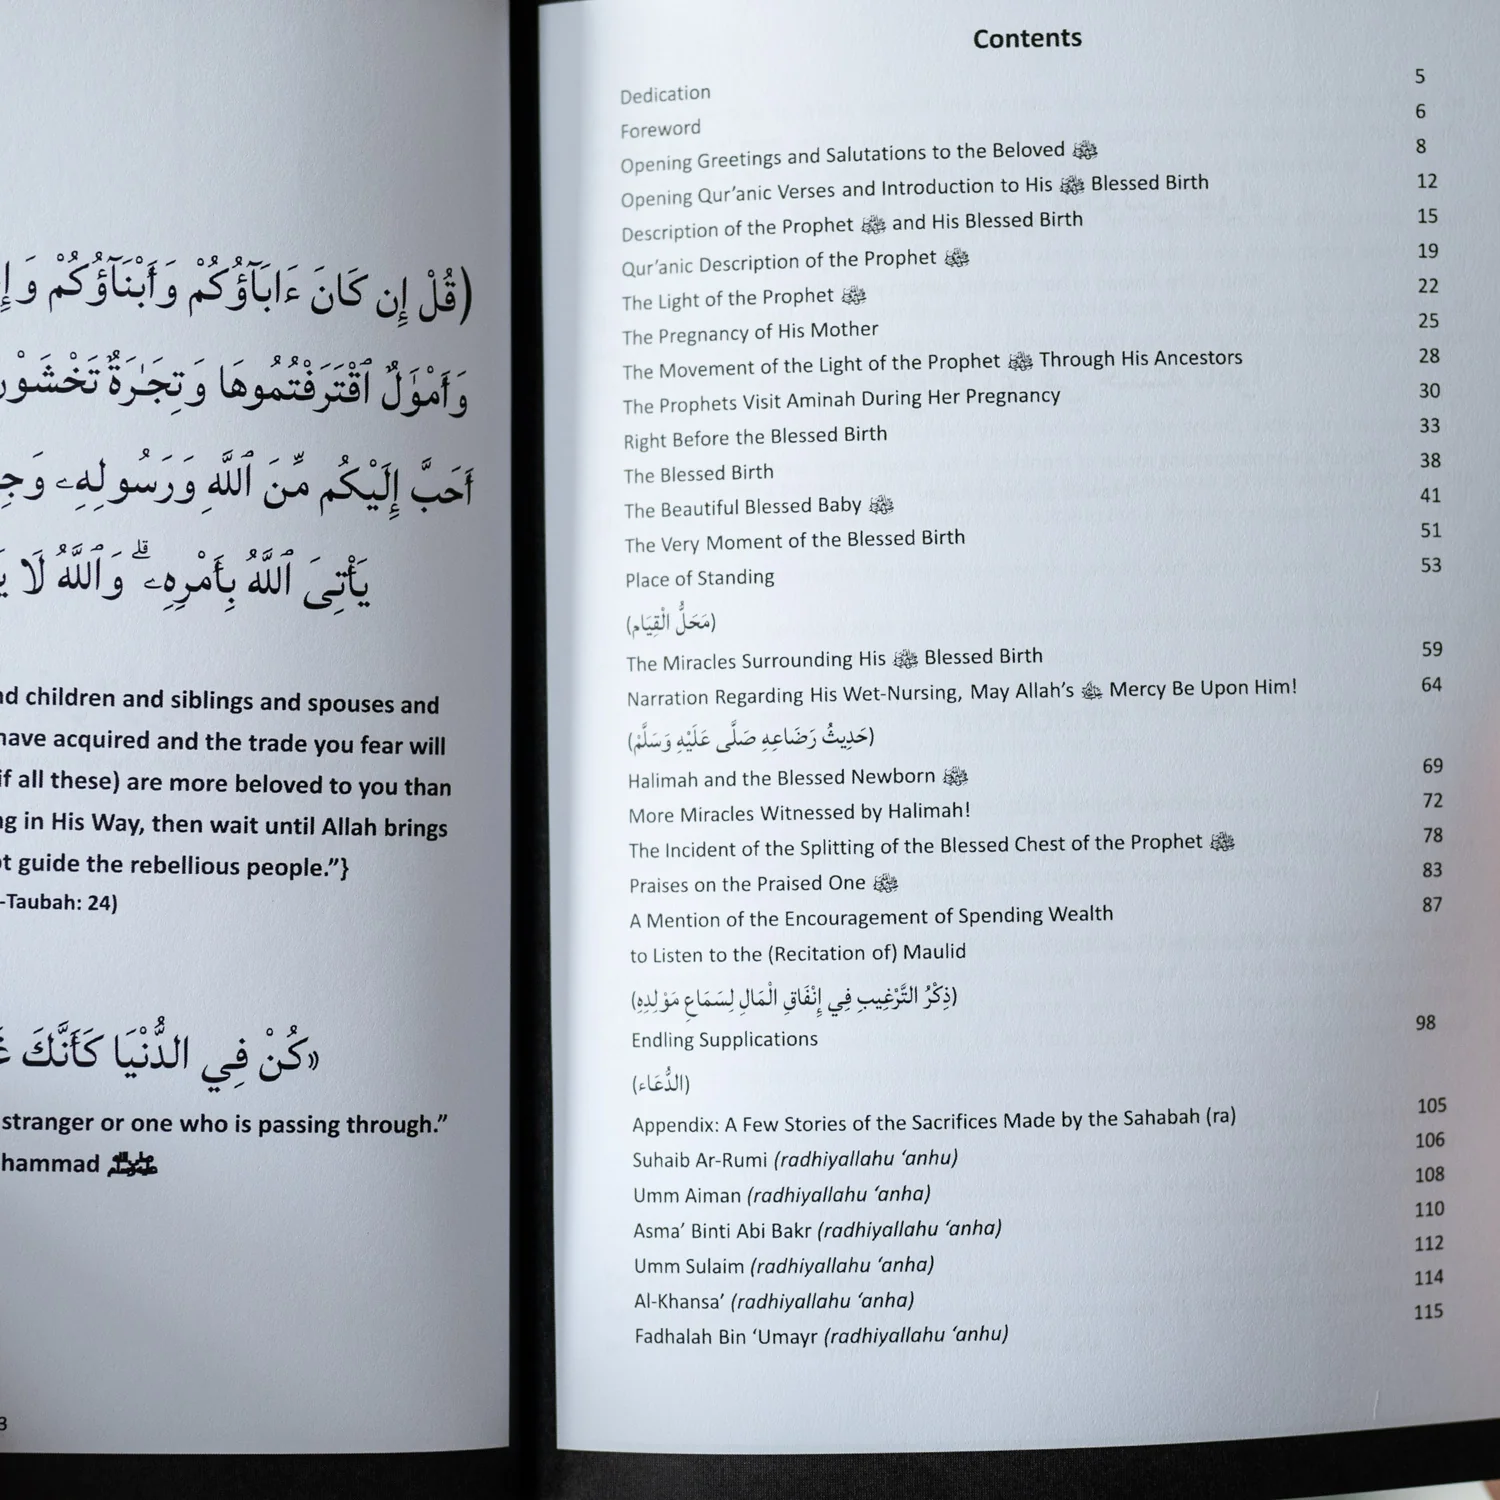 (قُلْ إِن كَانَ ءَابَآؤُكُمْ وَأَبْنَآؤُكُمْ
وَأَمْوَٰلٌ ٱقْتَرَفْتُمُوهَا وَتِجَـٰرَةٌ تَخْشَوْنَ
أَحَبَّ إِلَيْكُم مِّنَ ٱللَّهِ وَرَسُولِهِۦ
يَأْتِىَ ٱللَّهُ بِأَمْرِهِۦ ۗ وَٱللَّهُ لَا
children and siblings and spouses and
have acquired and the trade you fear will
if all these) are more beloved to you than
in His Way, then wait until Allah brings
guide the rebellious people.”}
-Taubah: 24)
«كُنْ فِي الدُّنْيَا كَأَنَّكَ
stranger or one who is passing through.”
hammad ﷺ
3
Contents
Dedication 5
Foreword 6
Opening Greetings and Salutations to the Beloved ﷺ 8
Opening Qur’anic Verses and Introduction to His ﷺ Blessed Birth 12
Description of the Prophet ﷺ and His Blessed Birth 15
Qur’anic Description of the Prophet ﷺ 19
The Light of the Prophet ﷺ 22
The Pregnancy of His Mother 25
The Movement of the Light of the Prophet ﷺ Through His Ancestors 28
The Prophets Visit Aminah During Her Pregnancy 30
Right Before the Blessed Birth 33
The Blessed Birth 38
The Beautiful Blessed Baby ﷺ 41
The Very Moment of the Blessed Birth 51
Place of Standing 53
(مَحَلُّ الْقِيَام)
The Miracles Surrounding His ﷺ Blessed Birth 59
Narration Regarding His Wet-Nursing, May Allah’s Mercy Be Upon Him! 64
(حَدِيثُ رَضَاعِهِ صَلَّى عَلَيْهِ وَسَلَّمْ)
Halimah and the Blessed Newborn ﷺ 69
More Miracles Witnessed by Halimah! 72
The Incident of the Splitting of the Blessed Chest of the Prophet ﷺ 78
Praises on the Praised One ﷺ 83
A Mention of the Encouragement of Spending Wealth 87
to Listen to the (Recitation of) Maulid
(ذِكْرُ التَّرْغِيبِ فِي إِنْفَاقِ الْمَالِ لِسَمَاعِ مَوْلِدِهِ)
Endling Supplications 98
(الدُّعَاء)
Appendix: A Few Stories of the Sacrifices Made by the Sahabah (ra) 105
Suhaib Ar-Rumi (radhiyallahu ‘anhu) 106
Umm Aiman (radhiyallahu ‘anha) 108
Asma’ Binti Abi Bakr (radhiyallahu ‘anha) 110
Umm Sulaim (radhiyallahu ‘anha) 112
Al-Khansa’ (radhiyallahu ‘anha) 114
Fadhalah Bin ‘Umayr (radhiyallahu ‘anhu) 115